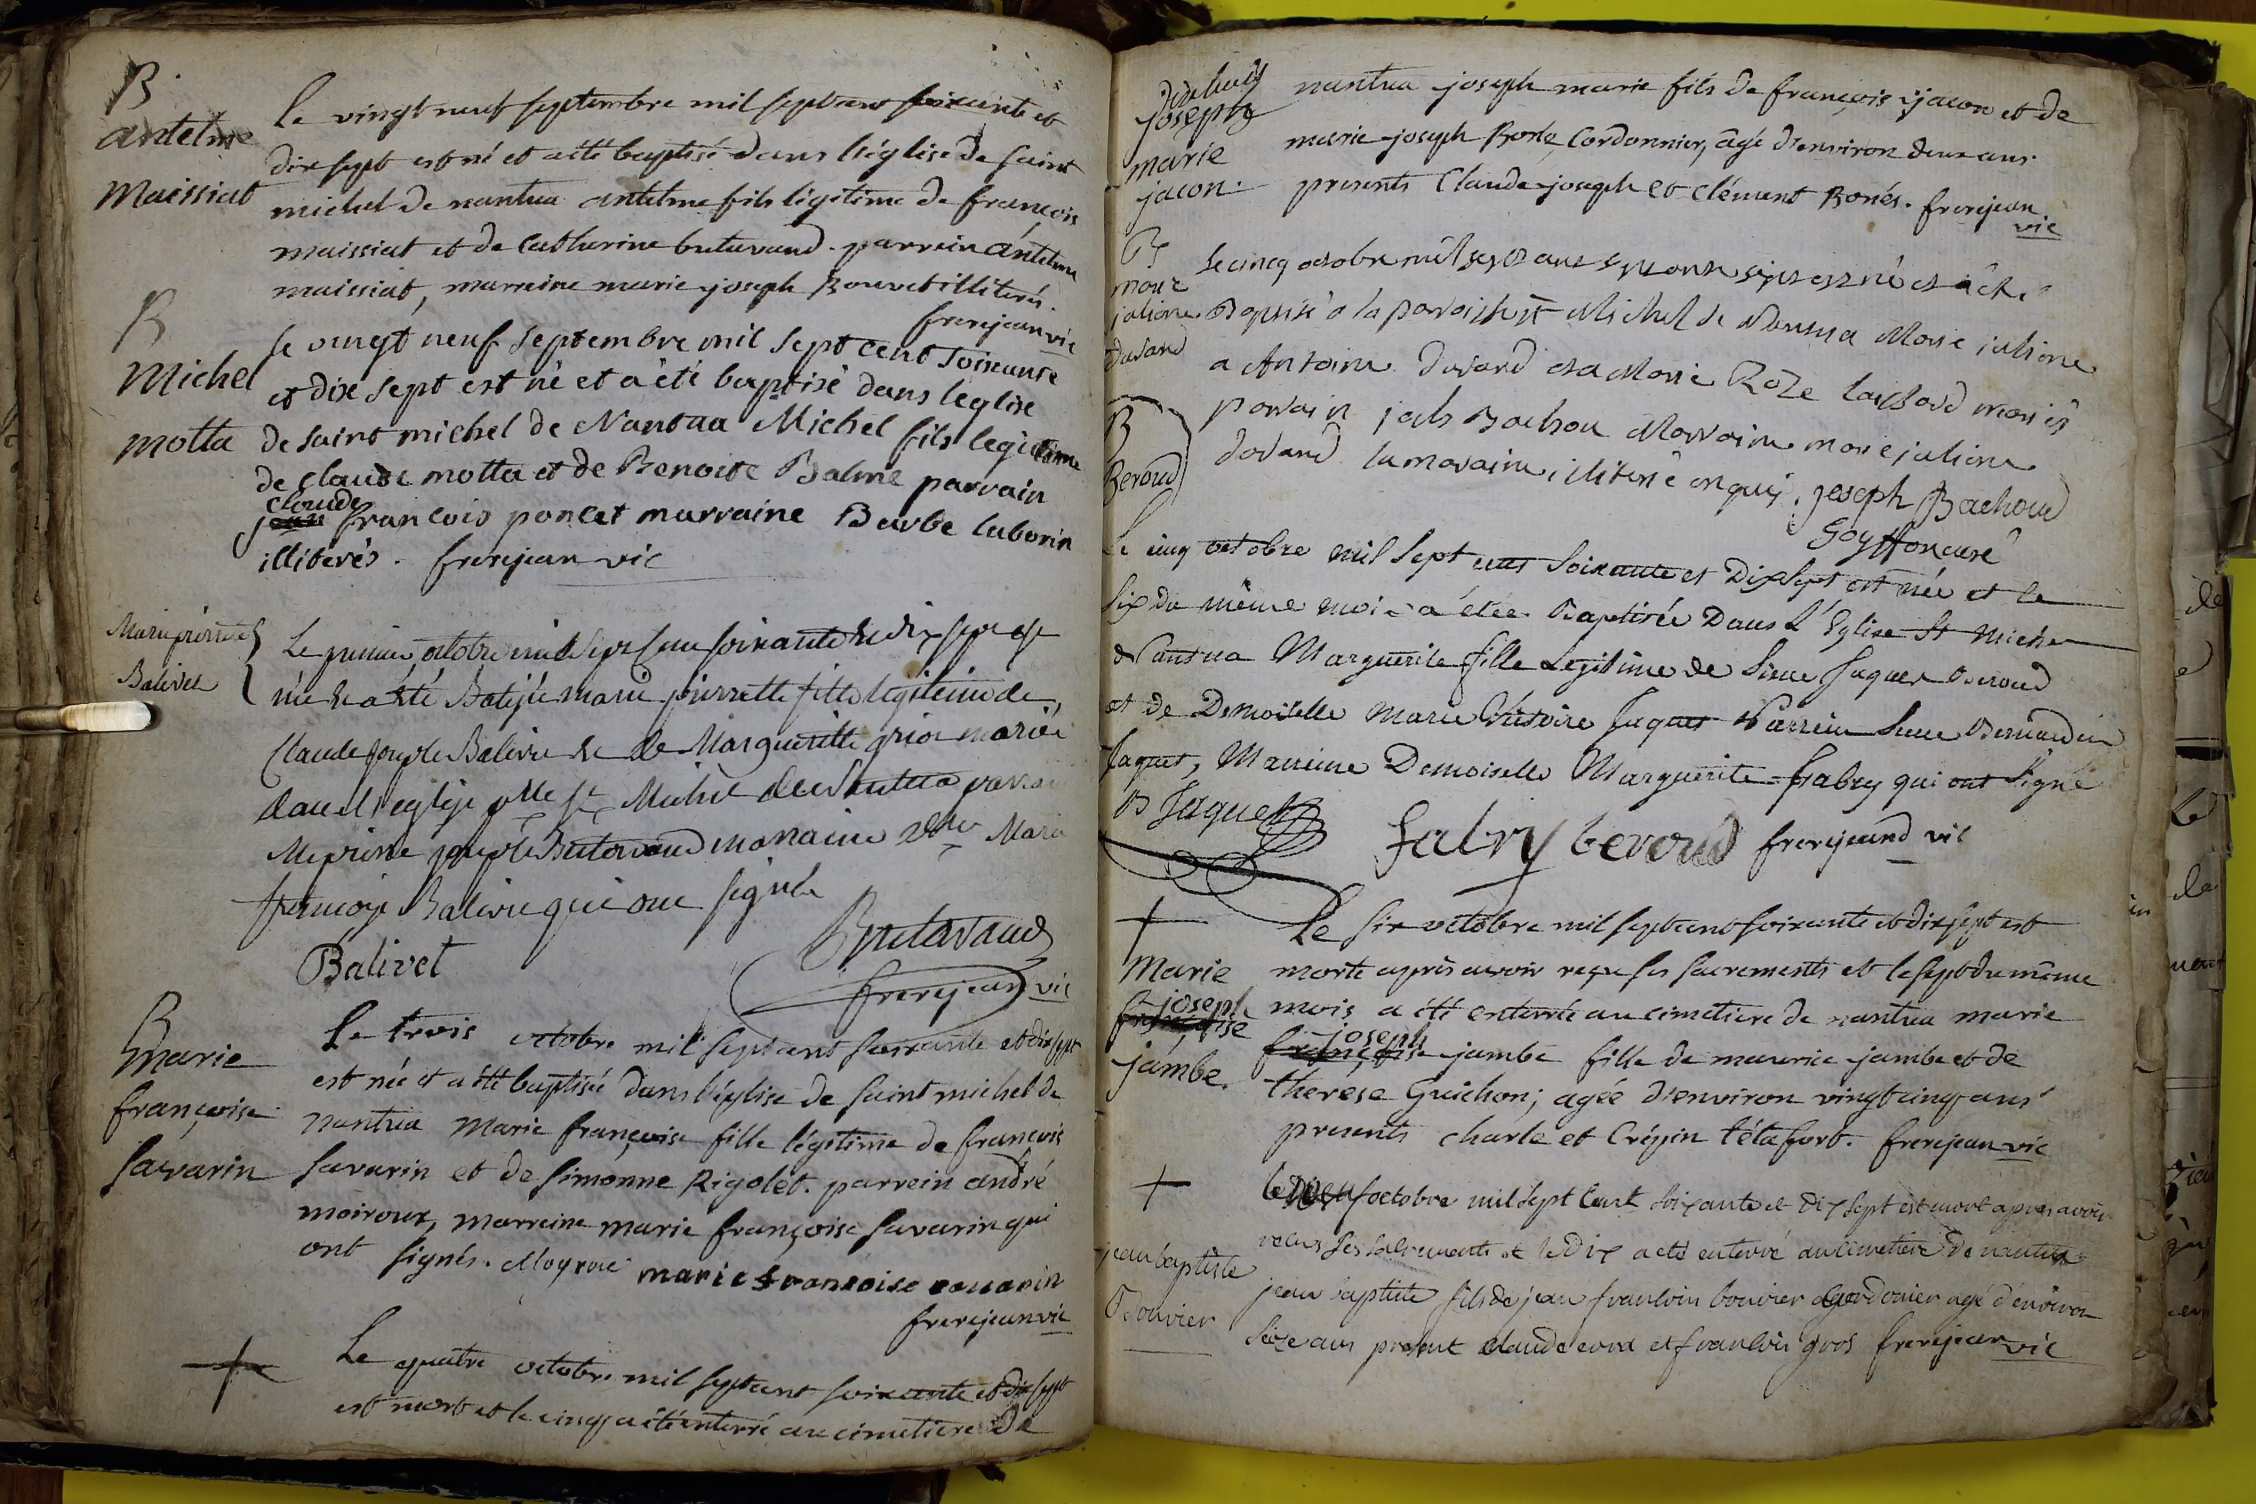 B
antelme
Maissiat
Le vingt neuf septembre mil sept cent soixante et
dix sept est né et a été baptisé dans l'église de saint
michel de nantua antelme fils légitime de françois
maissiat et de Catherine butavand. parrein antelme
maissiat, marreine marie joseph Bouvet illiterés.
frerejean vic
B
Michel
motta
le vingt neuf septembre mil sept cent soixante
et dix sept est né et a été baptisé dans leglise
de saint michel de Nantua Michel fils legitime
de claude motta et de Benoite Balme parrain
claude
jean francois poncet marraine Barbe laborin
illiterés. frerejean vic
Marie pierrette
Balivet
Le premier octobre mil sept cent soixante et dix sept est
née et a été Batisée marie pierrette fille legitime de
Claude joseph Balivet et de Margueritte mariés
dans l'eglise st Michel de Nantua parrain
joseph Butavand maraine Marie
françoise Balivet qui ont signé
Balivet
Butavand
frerejean vic
B
marie
françoise
savarin
Le trois octobre mil sept cent soixante et dix sept
est née et a été baptisée dans l'église de saint michel de
nantua Marie françoise fille légitime de françois
savarin et de simonne Rigolet. parrein andré
moiroux, marreine marie françoise savarin qui
ont signés. Moyroue marie francoise savarin
frerejean vic
+
Le quatre octobre mil sept cent soixante et dix sept
est mort et le cinq a été enterré au cimetiere de
joseph
marie
jacon.
nantua joseph marie fils de françois jacon et de
marie joseph Cordonnier, âgé d'environ deux ans.
presents Claude joseph et Clément Bonés. frerejean
vic
B
marie
juliene
davard
Le cinq octobre mil sept cent septante sept est né et a été
Baptisé a la paroisse st Michel de Nantua Marie juliene
a Antoine davard et a Marie Roze mariés
parrain Bachou Marraine marie juliene
davard la maraine illiterée enquis. joseph Bachoud
Goyffon curé
B
Beroud
Le cinq octobre mil sept cent soixante et Dix sept est née et le
six du même mois a étée Baptisée Dans L'Eglise St Michel
de Nantua Marguerite fille Legitime de Sieur Jaques Beroud
et de Demoiselle Marie Victoire Jaquet Parrein Sieur Bernardin
Jaquet, Marreine Demoiselle Marguerite Fabry qui ont Signé
B Jaquet
fabry beroud frerejeand vic
+
Marie
joseph
françoise
jambe.
Le six octobre mil sept cent soixante et dix sept est
morte après avoir reçu ses sacrements et le sept du même
mois a été enterrée au cimetiere de nantua marie
joseph
françoise jambe fille de maurice jambe et de
therese Guichon; agée d'environ vingt cinq ans
presents charle et Crépin tétafort. frerejean vic
+
jean baptiste
Bouvier
le neuf octobre mil sept cent soixante et dix sept est mort apres avoir
recus ses sacrements et le dix a eté enterré au cimetiere de nantua
jean baptiste fils de jean francois bouvier cordonier agé d'environ
seize ans present claude et francois gros frerejean vic